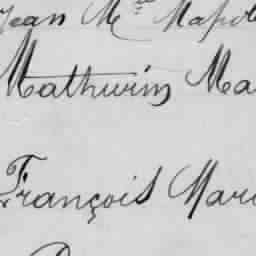 Jean M
Mathurin Ma
François Mari